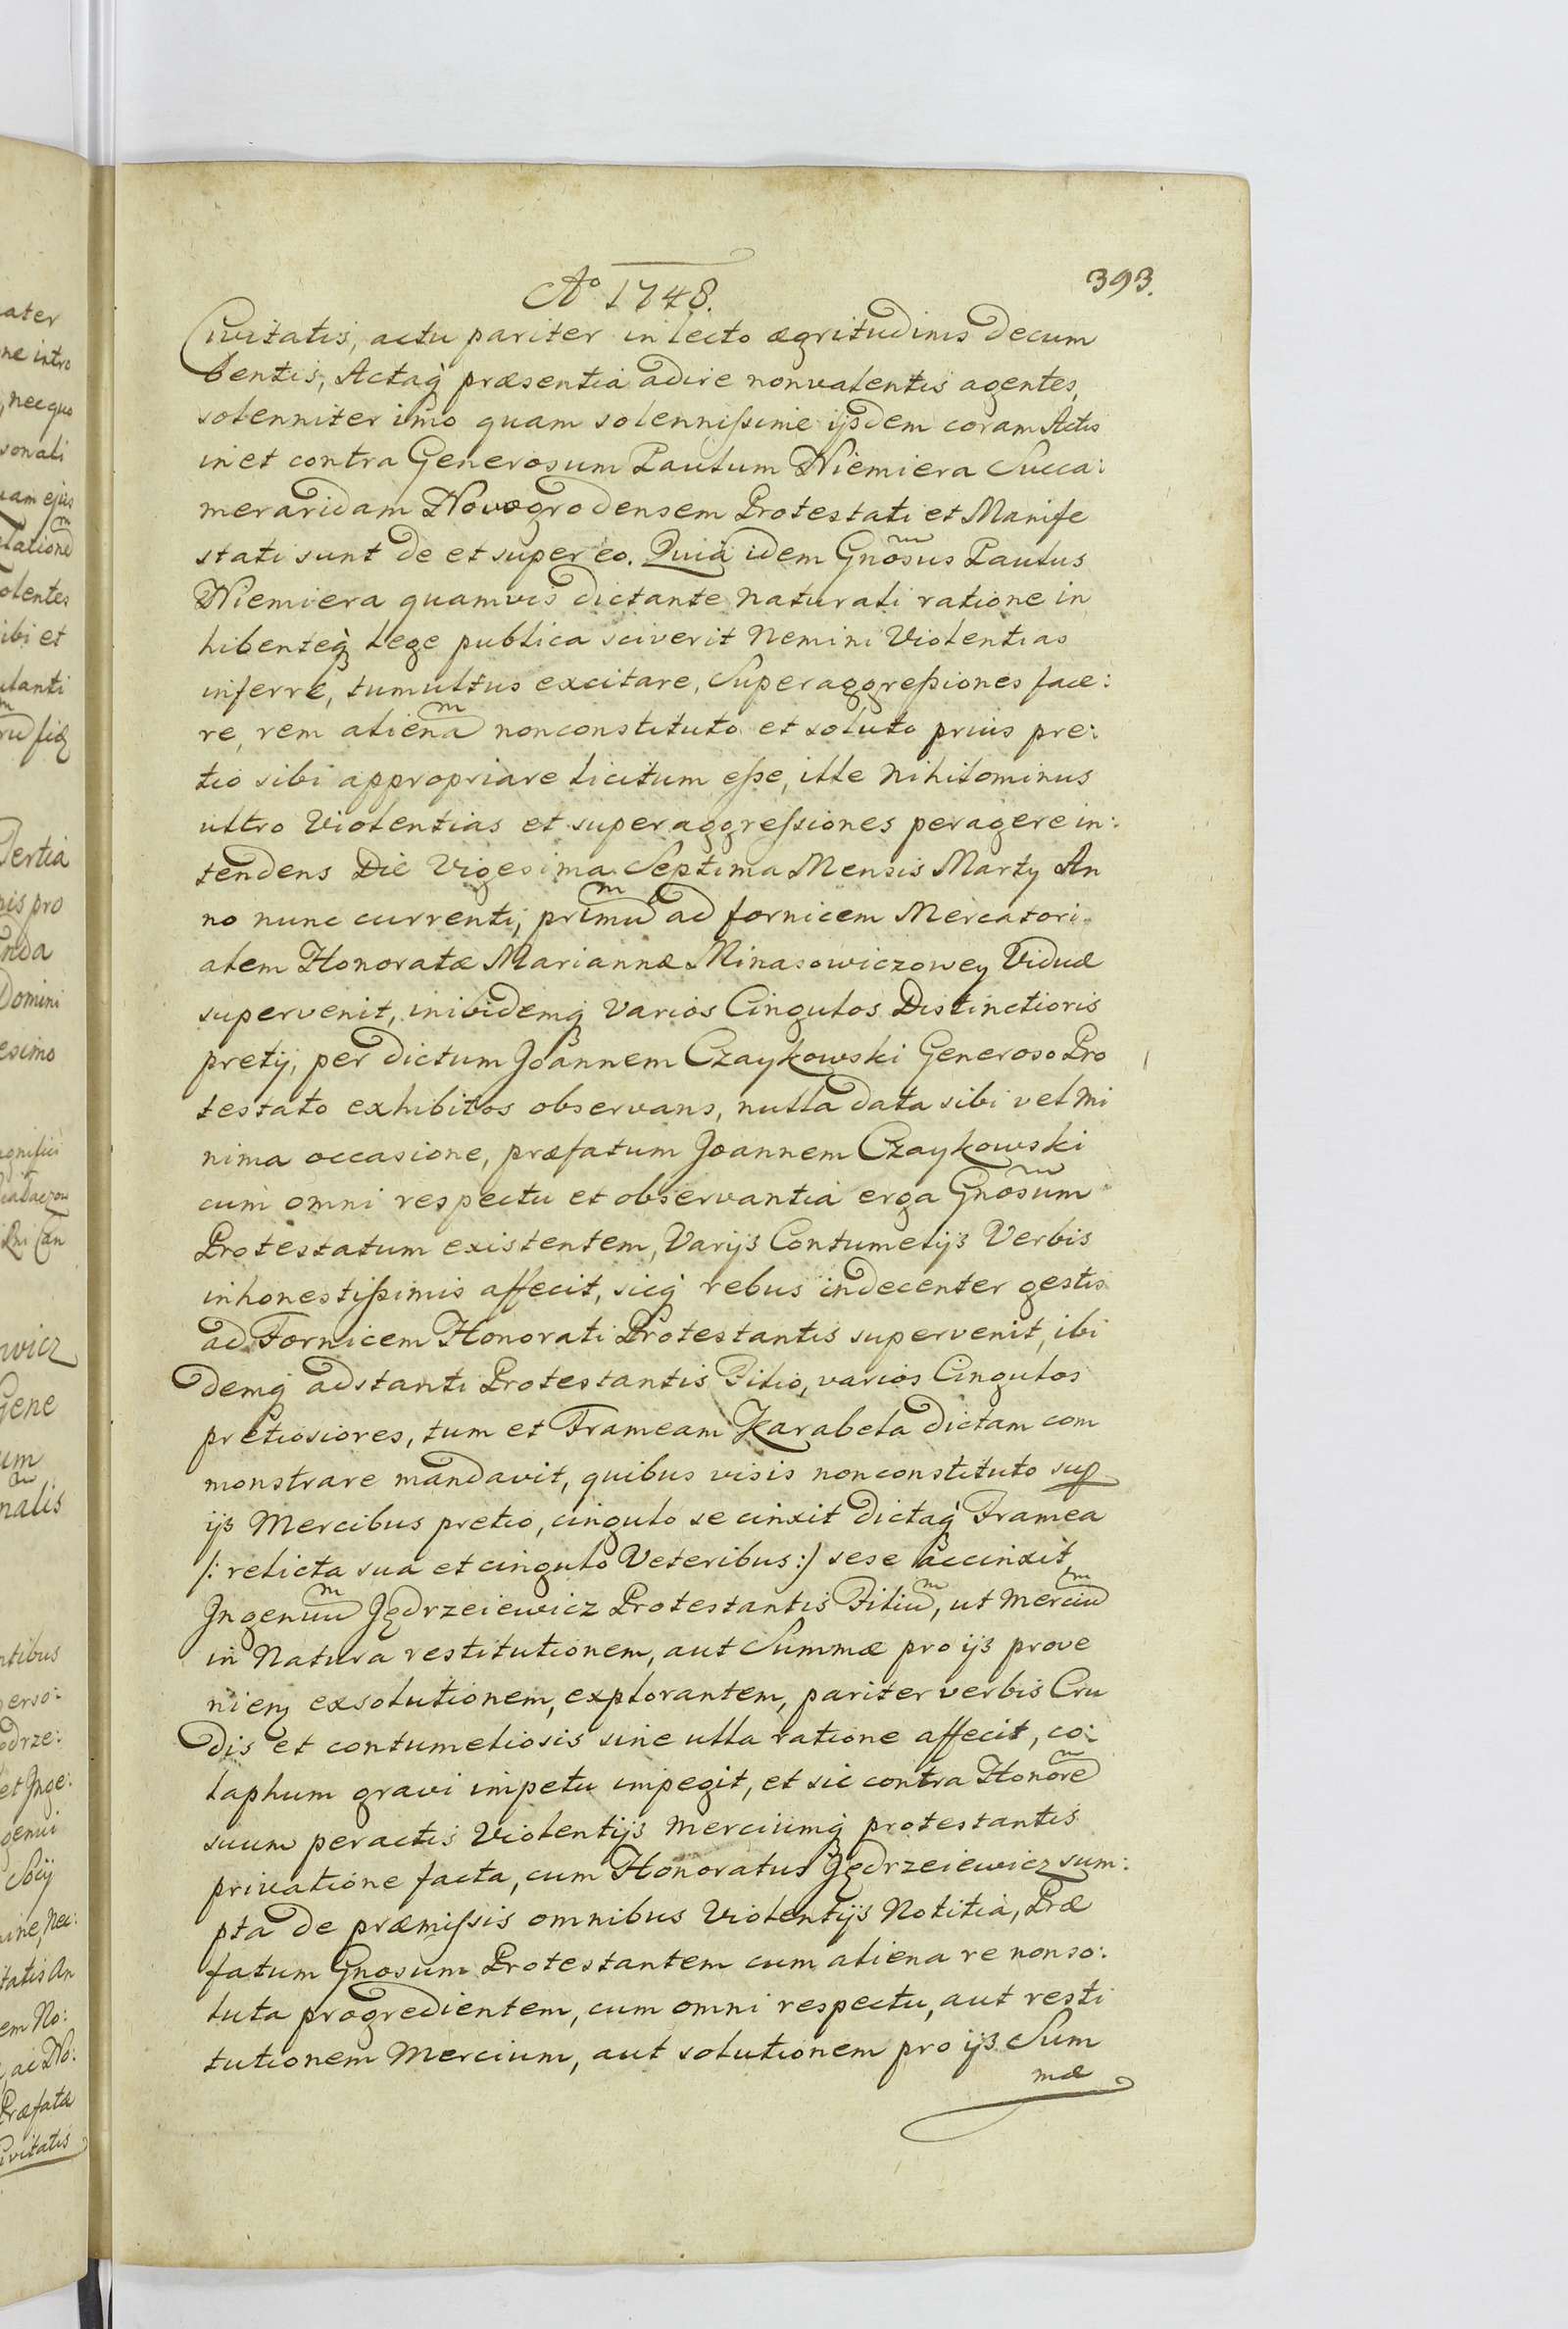 Aº 1748.
393.
Civitatis, actu pariter in lecto ægritudinis decum
bentis, Actaq præsentia adire nonvalentis agentes,
solenniter imo quam solennissime ijsdem coram Actis
in et contra Generosum Paulum Niemiera Succa:
meraridam Novogrodensem Protestati et Manife
stati sunt de et super eo. Quia idem Gnosus Paulus
Niemiera quamvis dictante naturali ratione in
hibenteq lege publica sciverit Nemini Violentias
inferre, tumultus excitare, Superaggressiones face:
re, rem alienam nonconstituto et soluto prius pre:
tio sibi appropriare licitum esse, ille Nihilominus
ultro Violentias et superaggressiones peragere in:
tendens Die Vigesima Septima Mensis Martij An
no nunc currenti, primum ad fornicem Mercatori
alem Honoratæ Mariannæ Minasowiczowey Viduæ
supervenit, inibidemq varios Cingulos Distinctioris
pretij, per dictum Joannem Czaykowski Generoso Pro
testato exhibitos observans, nulla data sibi vel mi
nima occasione, præfatum Joannem Czaykowski
cum omni respectu et observantia erga Gnosum
Protestatum existentem, Varijs Contumelijs Verbis
inhonestissimis affecit, sicq rebus indecenter gestis
ad Fornicem Honorati Protestantis supervenit, ibi
demq adstanti Protestantis Filio, varios Cingulos
pretiosiores, tum et Frameam Karabela dictam com
monstrare mandavit, quibus visis nonconstituto sup
ijs Mercibus pretio, cingulo se cinxit dictaq Framea
/: relicta sua et cingulo Veteribus :/ sese accinxit,
Ingenuum Jędrzeiewicz Protestantis Filium, ut Mercium
in Natura restitutionem, aut Summæ pro ijs prove
nien exsolutionem, explorantem, pariter verbis Cru
dis et contumeliosis sine ulla ratione affecit, co:
laphum gravi impetu impegit, et sic contra Honorem
suum peractis Violentijs Merciumq protestantis
privatione facta, cum Honoratus Jędrzeiewicz sum:
pta de præmissis omnibus Violentijs Notitia, Præ
fatum Gnosum Protestantem cum aliena re nonso:
luta progredientem, cum omni respectu, aut resti
tutionem Mercium, aut solutionem pro ijs Sum
mæ